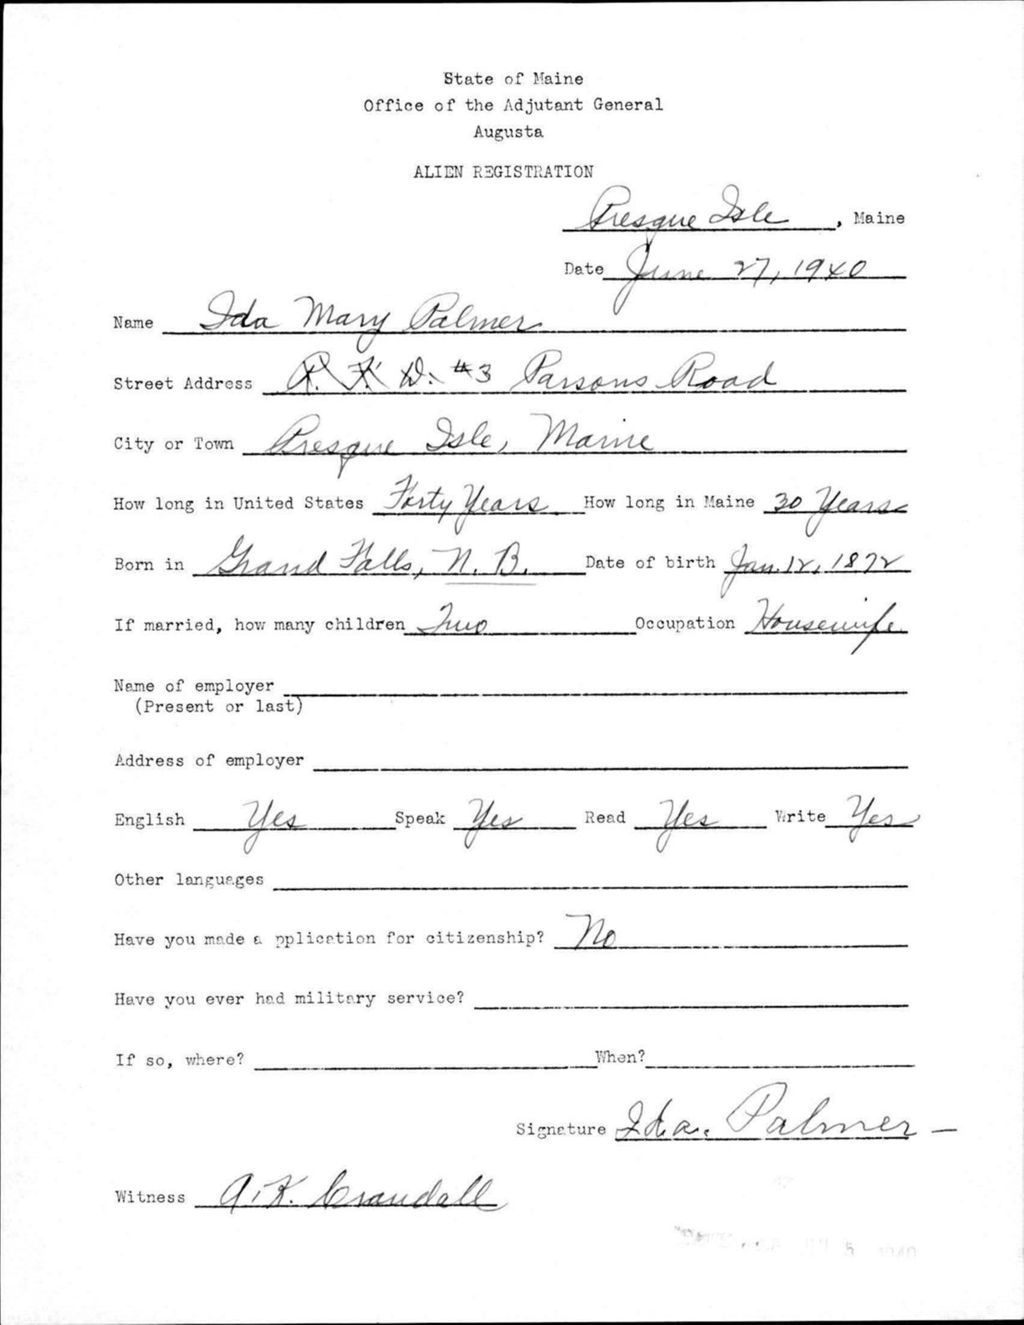 State of Maine
Office of the Adjutant General
Augusta
ALIEN REGISTRATION
Presque Isle, Maine
Date June 27, 1940
Name Ida Mary Palmer
Street Address R. F. D. #3 Parsons Road
City or Town Presque Isle, Maine
How long in United States Forty Years How long in Maine 30 Years
Born in Grand Falls, N. B. Date of birth Jan. 12, 1872
If married, how many children Two Occupation Housewife
Name of employer
(Present or last)
Address of employer
English Yes Speak Yes Read Yes Write Yes
Other languages
Have you made a pplication for citizenship? No
Have you ever had military service?
If so, where? When?
Signature Ida. Palmer
Witness A. K. Crandall